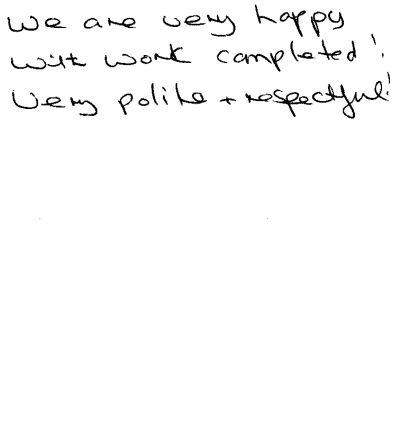 We are very happy
with work completed!
Very polite + respectful!